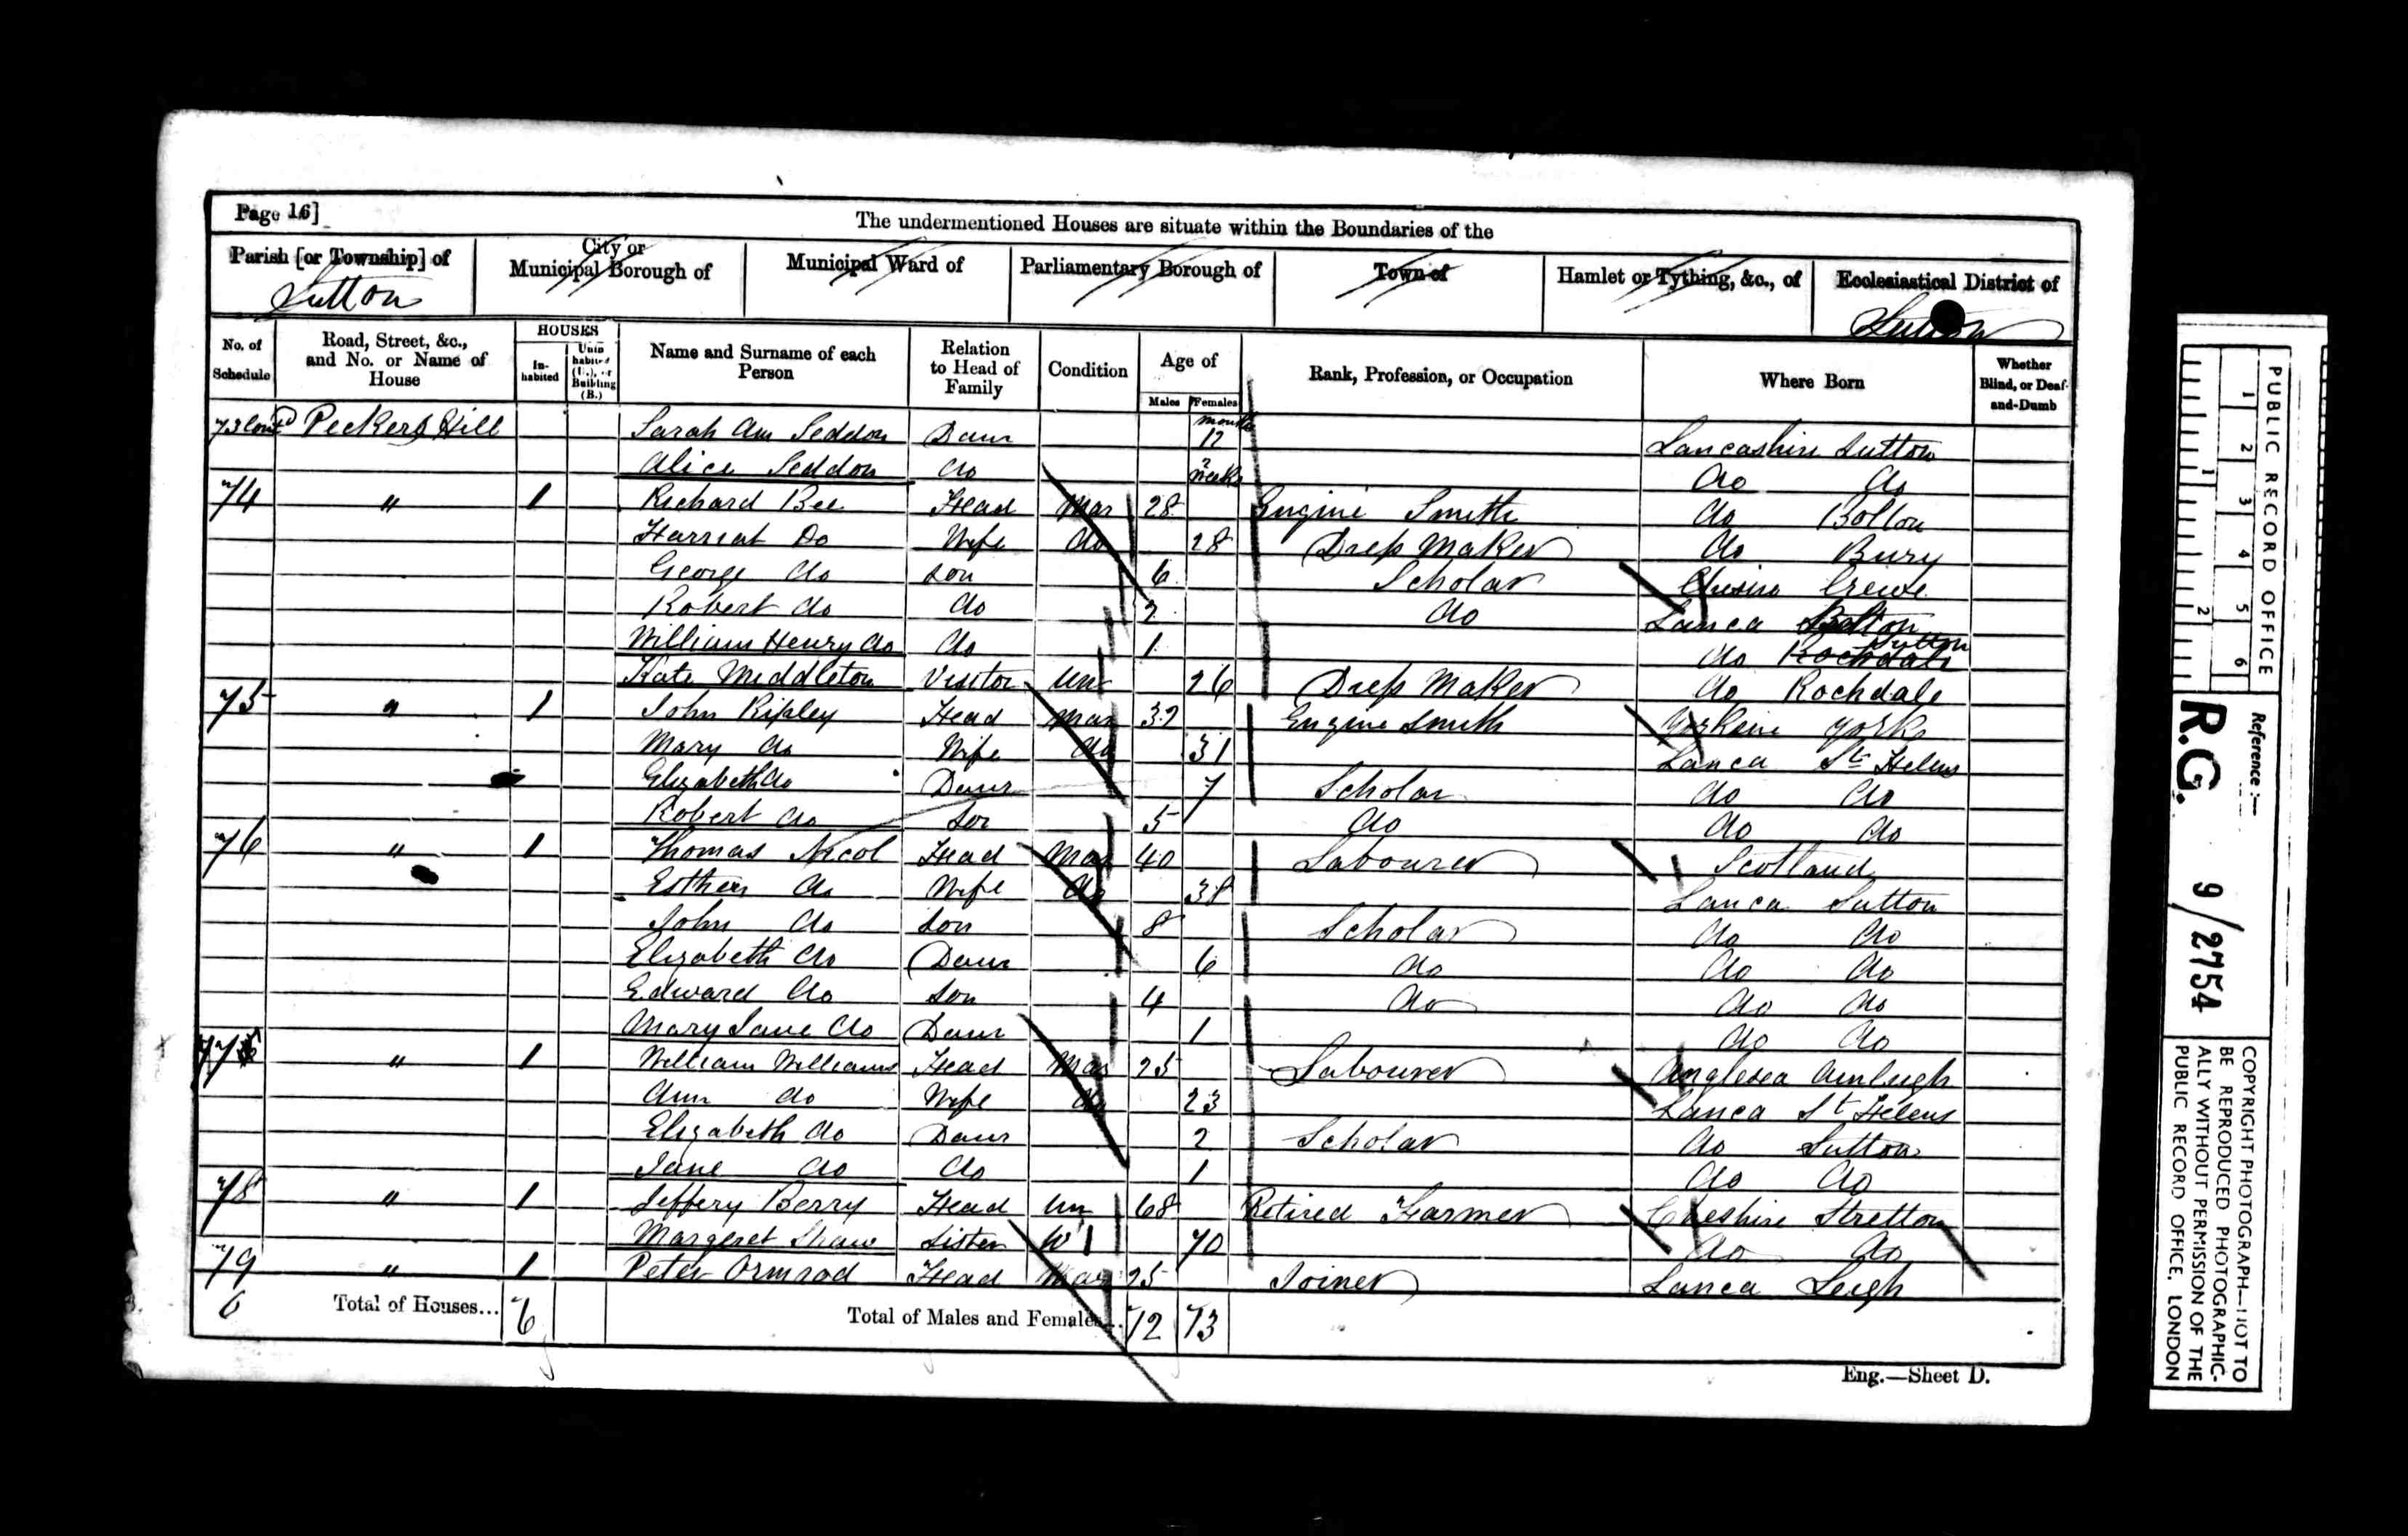 Page 16]
The undermentioned Houses are situate within the Boundaries of the
Parish [or Township] of
Sutton
City or Municipal Borough of
Municipal Ward of
Parliamentary Borough of
Town of
Hamlet or Tything, &c., of
Ecclesiastical District of
Sutton
No. of Schedule
Road, Street, &c., and No. or Name of House
HOUSES
In-habited
Uninhabited (U.), or Building (B.)
Name and Surname of each Person
Relation to Head of Family
Condition
Age of
Males
Females
Rank, Profession, or Occupation
Where Born
Whether Blind, or Deaf-and-Dumb
73 Contd Peckers Hill Sarah Ann Seddon Daur months 12 Lancashire Sutton
Alice Seddon do weeks do do
74 " 1 Richard Bee Head Mar 28 Engine Smith do Bolton
Harriat Do Wife do 28 Dress Maker do Bury
George do son 6 Scholar Chesire Crewe
Robert do do 2 do Lanca
William Henry do do 1 do Rochdale Sutton
Kate Middleton Visitor Un 26 Dress Maker do Rochdale
75 " 1 John Ripley Head Mar 32 Engine Smith Yorks
Mary do Wife do 31 Lanca St Helens
Elizabeth do Daur 7 Scholar do do
Robert do Son 5 do do do
76 " 1 Thomas Nicol Head Mar 40 Labourer Scotland
Esther do Wife do 38 Lanca Sutton
John do son 8 Scholar do do
Elizabeth do Daur 6 do do do
Edward do Son 4 do do do
Mary Jane do Daur 1 do do
77 " 1 William Williams Head Mar 25 Labourer Anglesea Amlugh
Ann do Wife do 23 Lanca St Helens
Elizabeth do Daur 2 Scholar do Sutton
Jane do do 1 do do
78 " 1 Jeffery Berry Head Un 68 Retired Farmer Cheshire Stretton
Margeret Shaw Sister W 70 do do
79 " 1 Peter Ormrod Head Mar 25 Joiner Lanca Leigh
6 Total of Houses... 6 Total of Males and Females... 12 13
Eng.—Sheet D.
PUBLIC RECORD OFFICE
1 2 3 4 5 6
1 2
Reference:—
R.G. 9/2754
COPYRIGHT PHOTOGRAPH—NOT TO BE REPRODUCED PHOTOGRAPHIC-
ALLY WITHOUT PERMISSION OF THE
PUBLIC RECORD OFFICE, LONDON